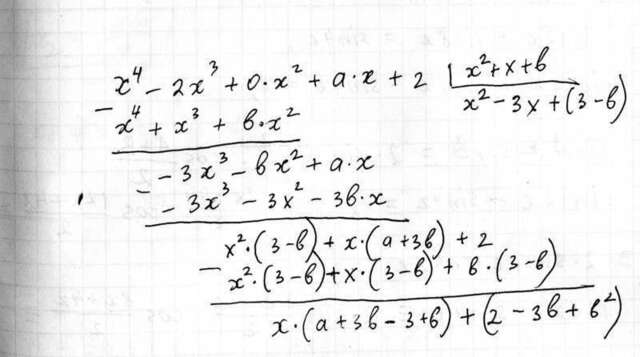 x⁴ - 2x³ + 0·x² + a·x + 2 | x² + x + b
- x⁴ + x³ + b·x² | x² - 3x + (3 - b)
- - 3x³ - bx² + a·x
- 3x³ - 3x² - 3b·x
x²·(3-b) + x·(a+3b) + 2
- x²·(3-b) + x·(3-b) + b·(3-b)
x·(a+3b-3+b) + (2 - 3b + b²)